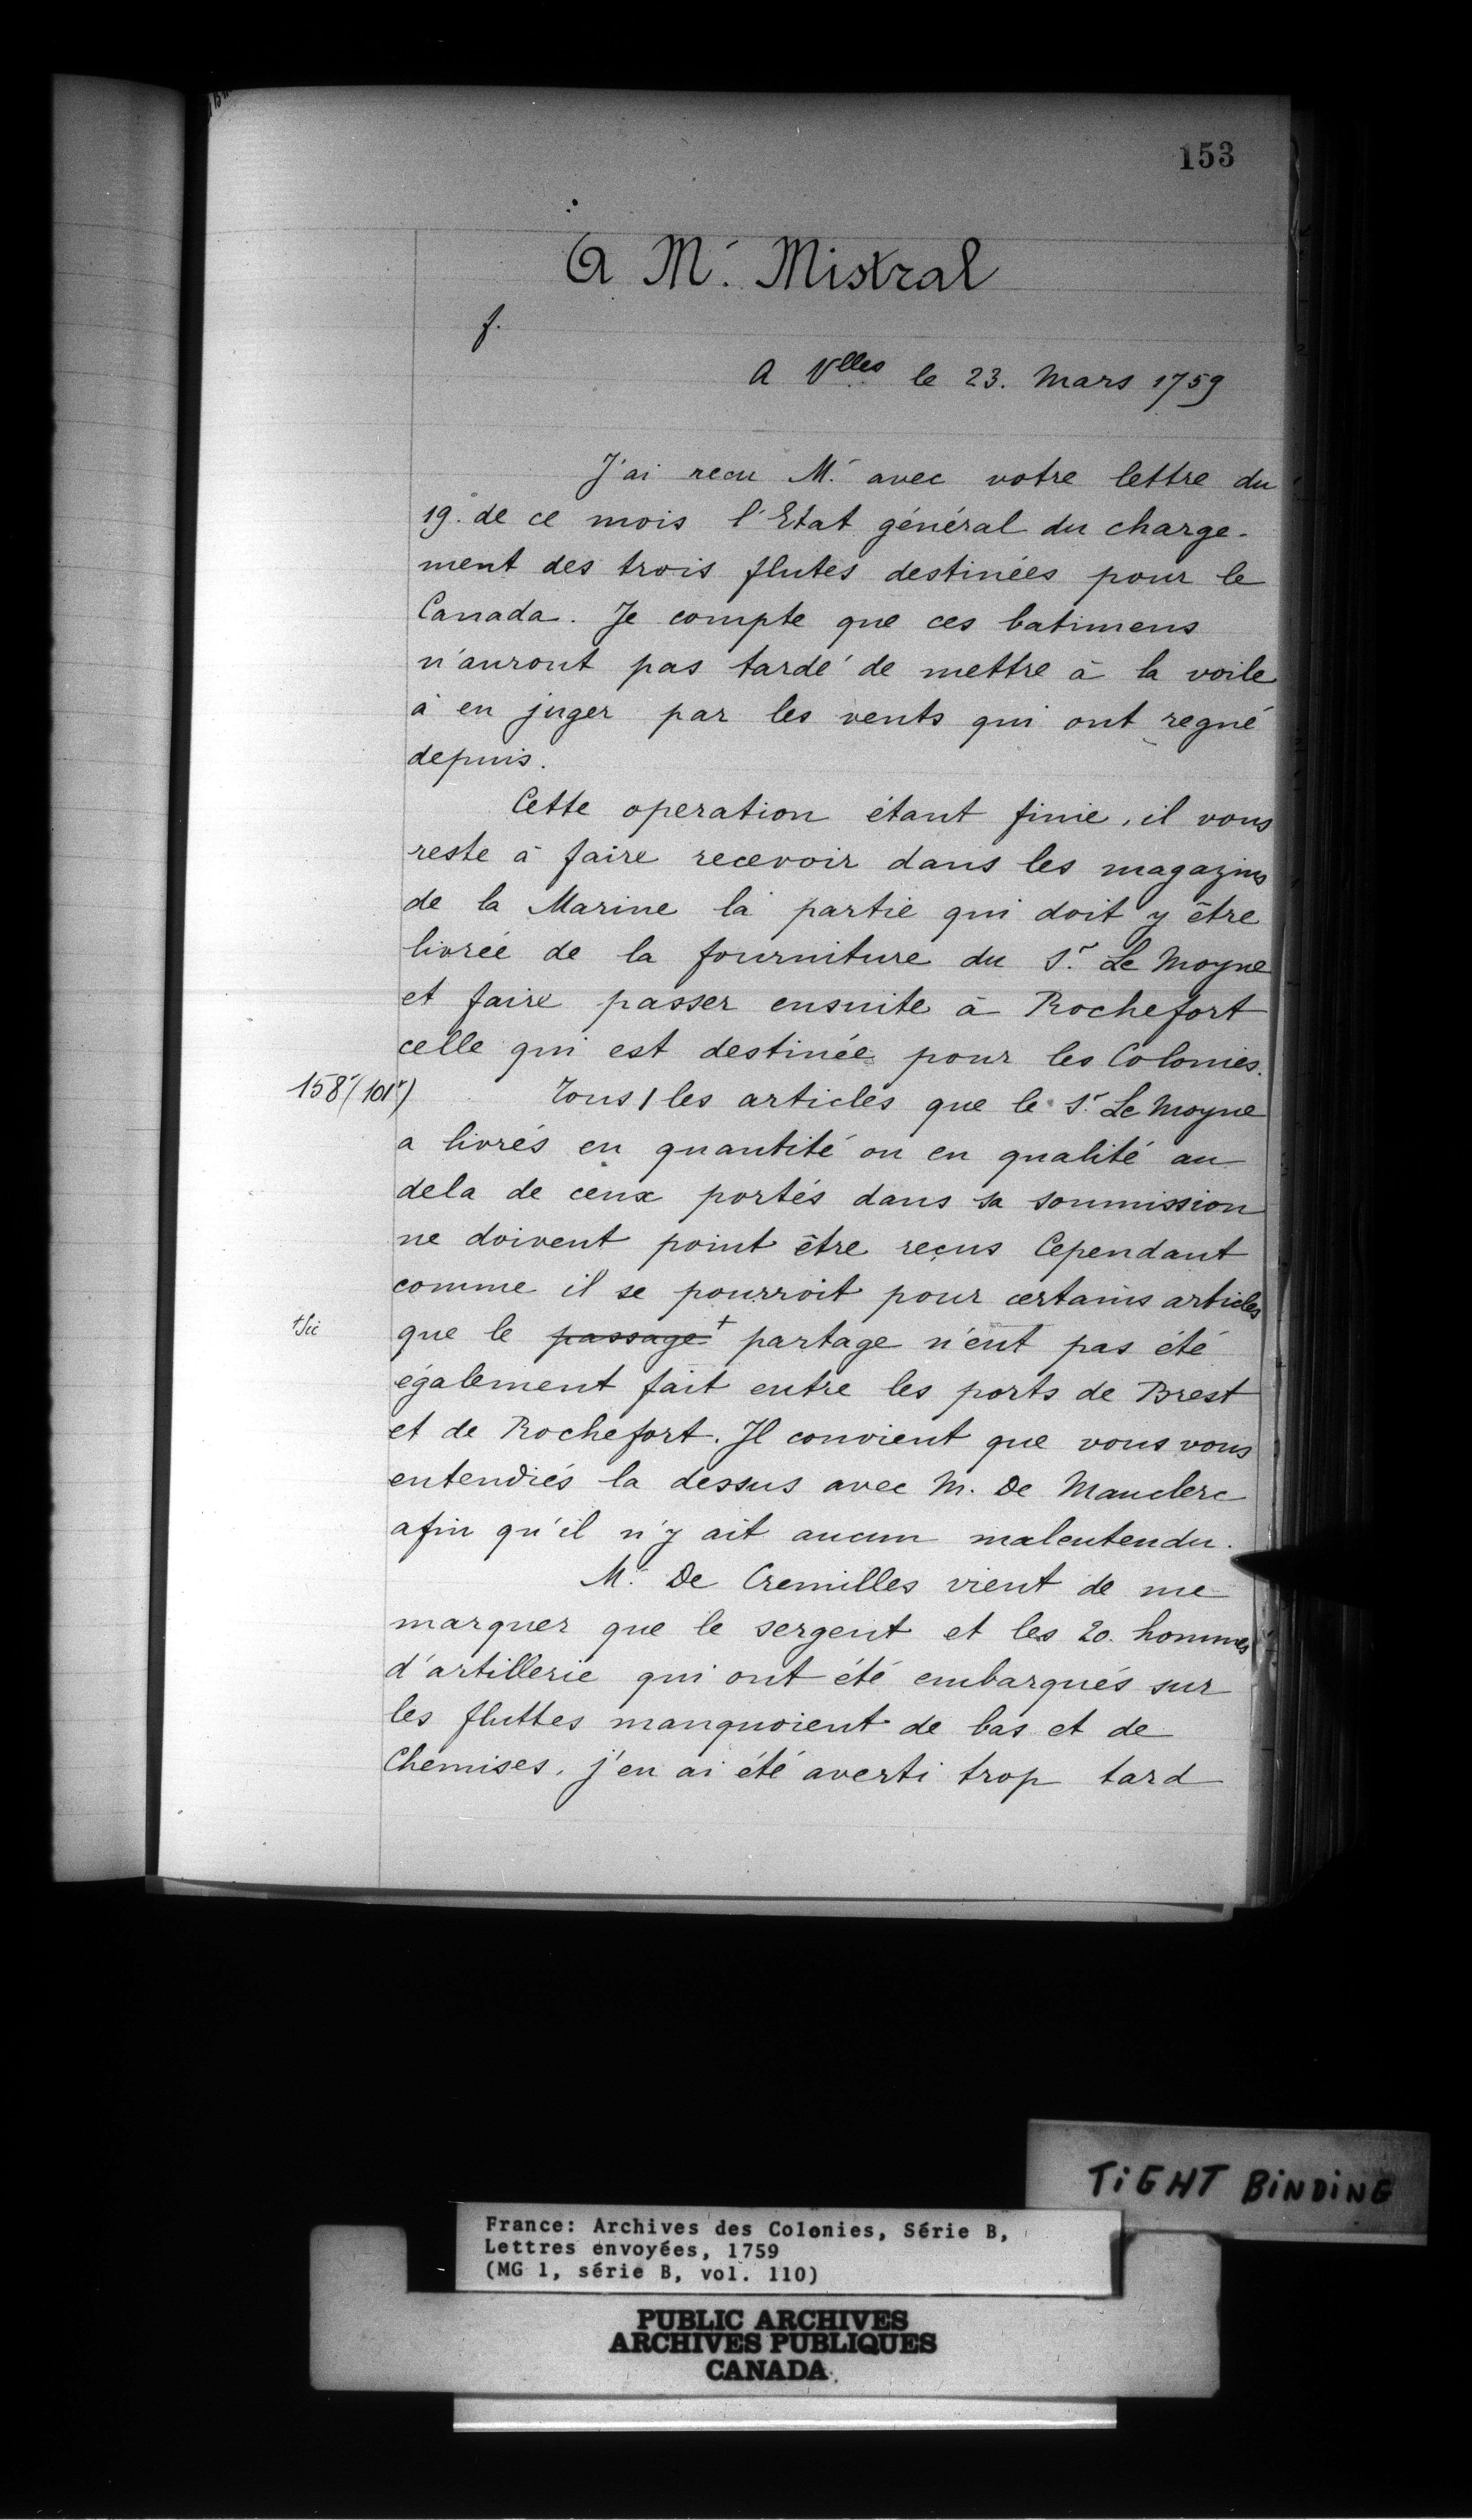 153
A Mr. Mistral
f.
A Vlles le 23. Mars 1759
J'ai recu Mr. avec votre lettre du
19. de ce mois l'Etat général du charge-
ment des trois flutes destinées pour le
Canada. Je compte que ces batimens
n'auront pas tardé de mettre à la voile
à en juger par les vents qui ont regné
depuis.
Cette operation étant finie, il vous
reste à faire recevoir dans les magazins
de la Marine la partie qui doit y être
livrée de la fourniture du Sr. Le Moyne
et faire passer ensuite à Rochefort
celle qui est destinée pour les Colonies.
158 (101)
Tous / les articles que le Sr. Le Moyne
a livrés en quantité ou en qualité au
dela de ceux portés dans sa soumission
ne doivent point être reçus Cependant
comme il se pourroit pour certains articles
+ Sic
que le passage + partage n'eut pas été
également fait entre les ports de Brest
et de Rochefort. Il convient que vous vous
entendiés la dessus avec M. De Mauclerc
afin qu'il n'y ait aucun malentendu.
Mr. De Cremilles vient de me
marquer que le sergent et les 20. hommes
d'artillerie qui ont été embarqués sur
les fluttes manquoient de bas et de
Chemises. j'en ai été averti trop tard
TIGHT BINDING
France: Archives des Colonies, Série B,
Lettres envoyées, 1759
(MG 1, série B, vol. 110)
PUBLIC ARCHIVES
ARCHIVES PUBLIQUES
CANADA